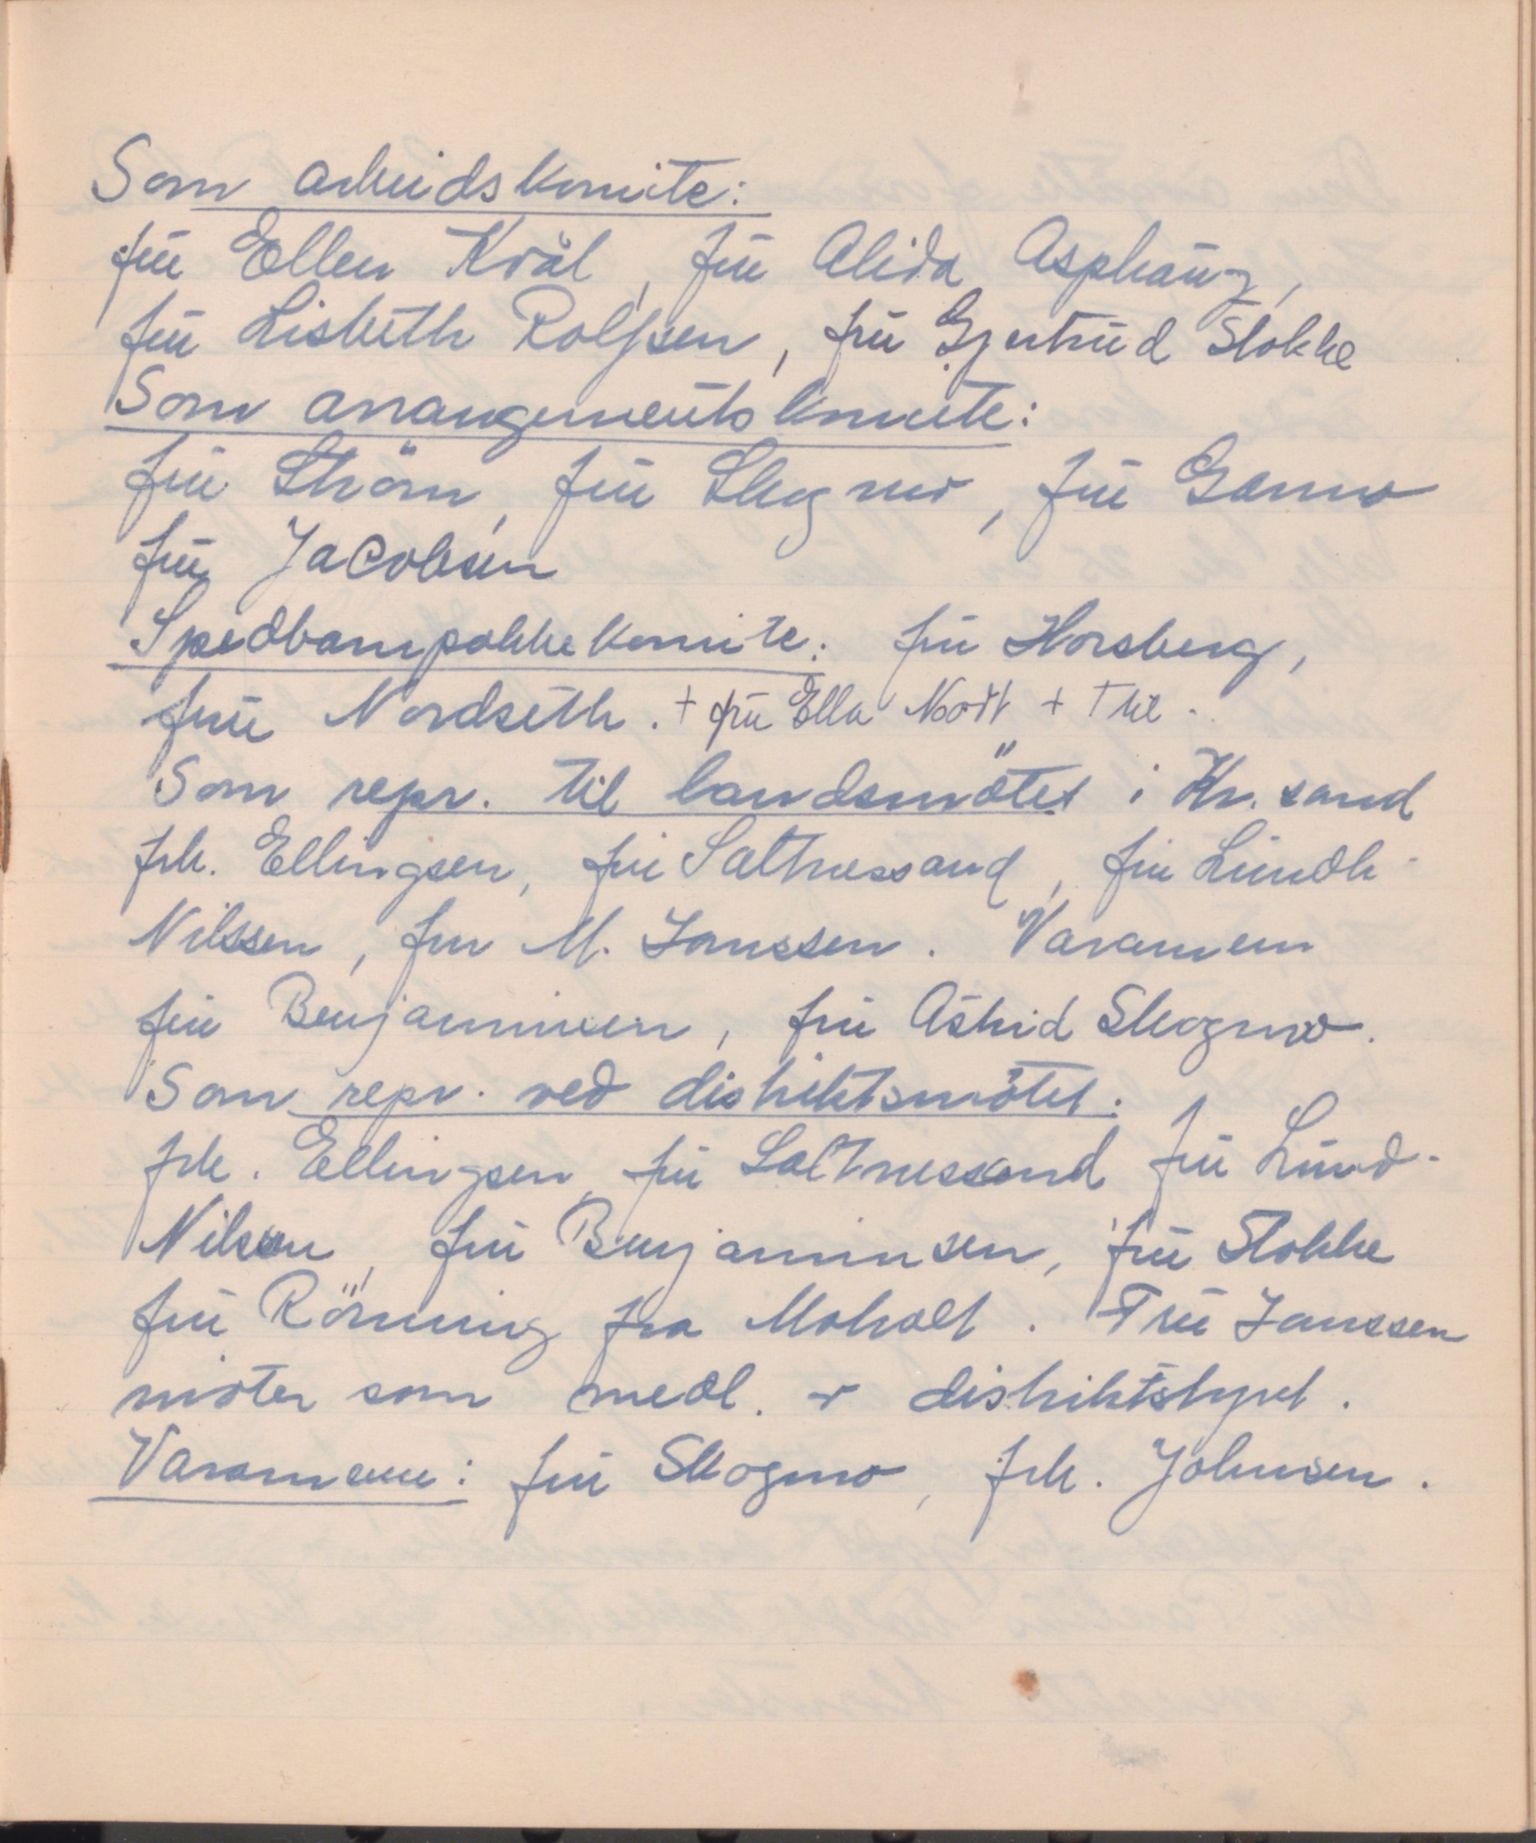 Som arbeidskomite:
fru Ellen Kvål, fru Alida Asphaug,
fru Lisbeth Rolfsen, fru Gjertrud Stokke
Som arrangementskomite:
fru Ström, fru Skogmo, fru Ganmo
fru Jacobsen
Spedbarnpakkekomite: fru Horsberg,
fru Nordseth. + fru Ella Noodt +
Som repr. til landsmötet i Kr. sand
frk. Ellingsen, fru Saltnessand, fru Lundh-
Nilssen, fru M. Janssen. Varamenn
fru Benjaminsen, fru Astrid Skogmo.
Som repr. ved distriktsmötet.
frk. Ellingsen, fru Saltnessand fru Lund-
Nilssen, fru Benjaminsen, fru Stokke
fru Rönning fra Moholt. Fru Janssen
möter som medl. av distriktstyret.
Varamenn: fru Skogmo, frk. Johnsen.